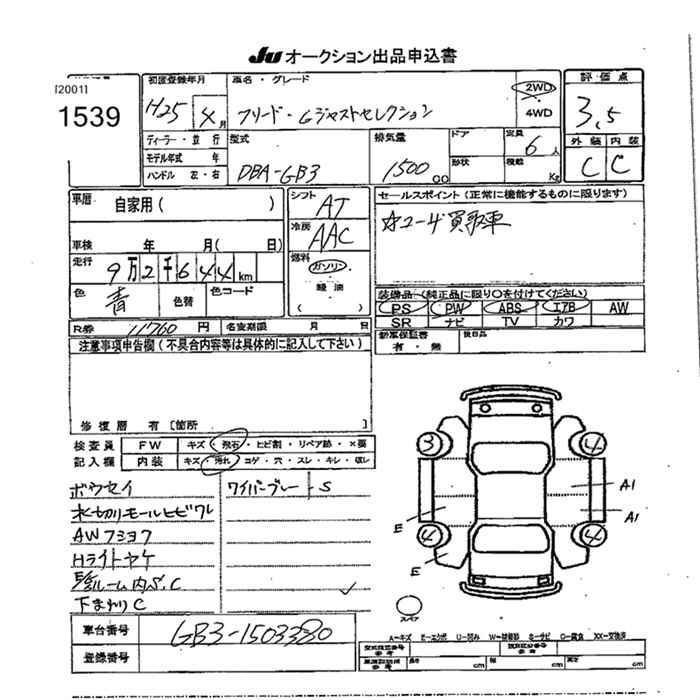 JU オークション出品申込書
[2001]
1539
初度登録年月
H25 年 4 月
車名・グレード
フリード・Gジャストセレクション
2WD
4WD
評価点
3.5
外装 内装
C C
ディーラー・並行
モデル年式 年
ハンドル 左・右
型式
DBA-GB3
排気量
1500 CC
ドア
形状
定員
6 人
積載
Kg
車歴
自家用( )
車検 年 月( 日)
走行 9万2千644 km
色 青
色替
色コード
シフト
AT
冷房
AAC
燃料
ガソリン
軽油
( )
セールスポイント(正常に機能するものに限ります)
☆ユーザ買取車
装備品(純正品に限り○を付けてください)
PS PW ABS エアB AW
SR ナビ TV カワ
新車保証書
有・無
後日品
R券 11760 円 名変期限 月 日
注意事項申告欄(不具合内容等は具体的に記入して下さい)
修復歴 有〔箇所
検査員 FW キズ・飛石・ヒビ割・リペア跡・×要
記入欄 内装 キズ・汚れ・コゲ・穴・スレ・キレ・収レ
ボウセイ
水切リモールヒビワレ
AWフミヨワ
Hライトヤケ
ルーム内S.C
下まわりC
ワイパーブレーS
3 4
4 4
E
E
A1
A1
スペア
A-キズ E-エクボ U-凹み W-補修跡 S-サビ C-腐食 XX-交換済
車台番号 GB3-1503380
登録番号
型式指定番号
参考
類別区分番号
参考
長さ cm
cm
高さ cm